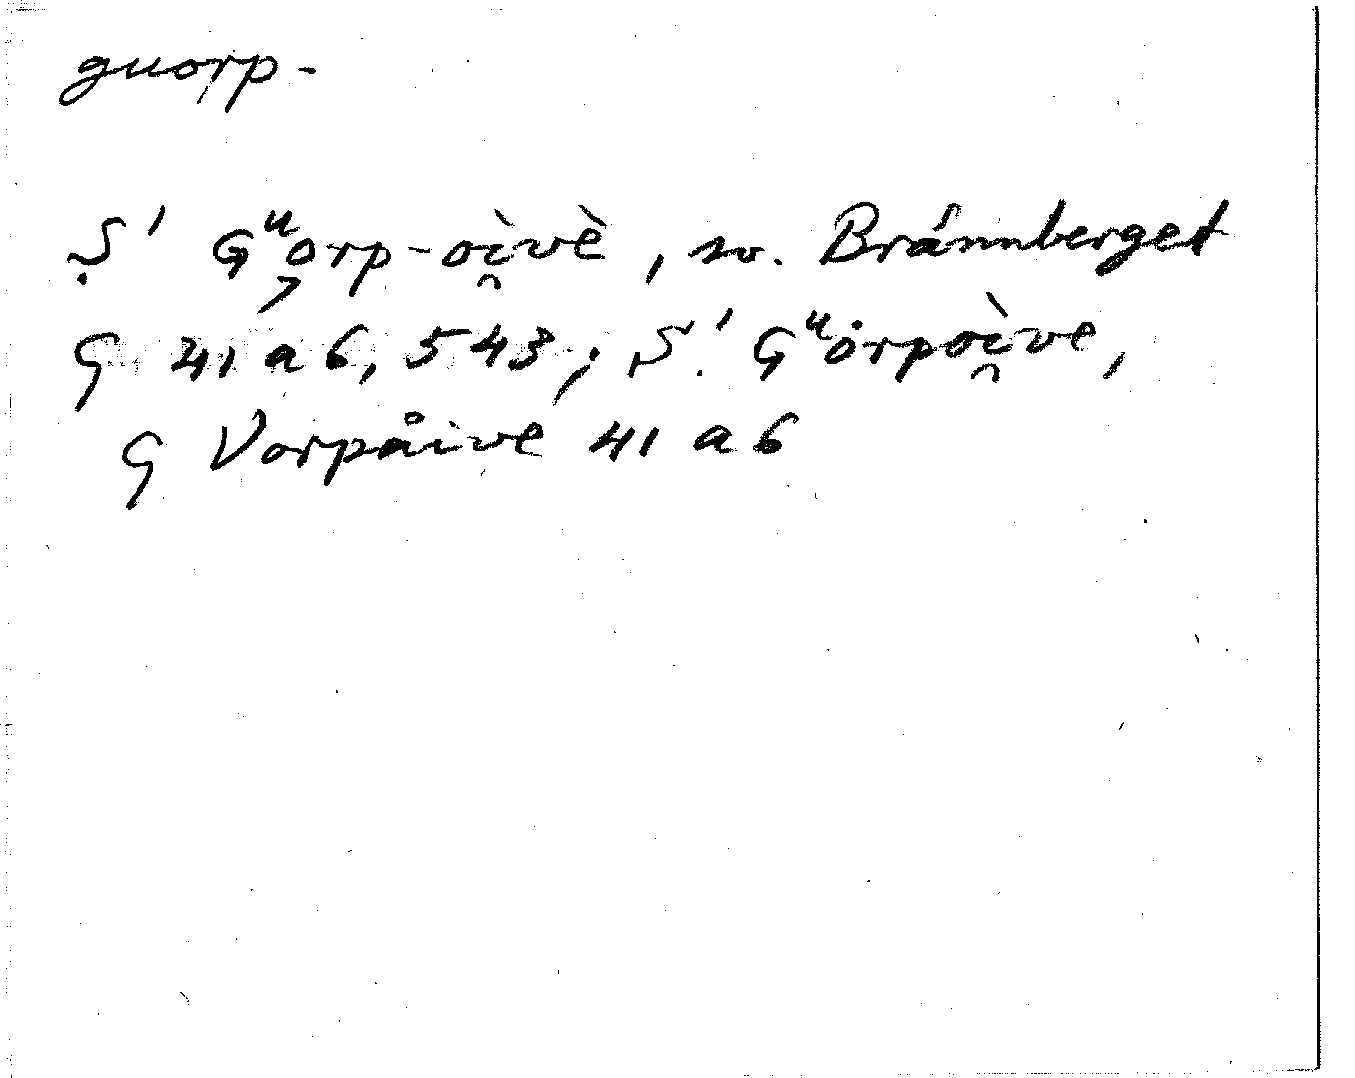 guorp-
Ṣ' Gᵘo̧rp-oì̯vè, sv. Bránnberget
G 41 a 6, 543; Ṣ' Gᵘȯrpoì̯ve,
G Vorpåive 41 a 6